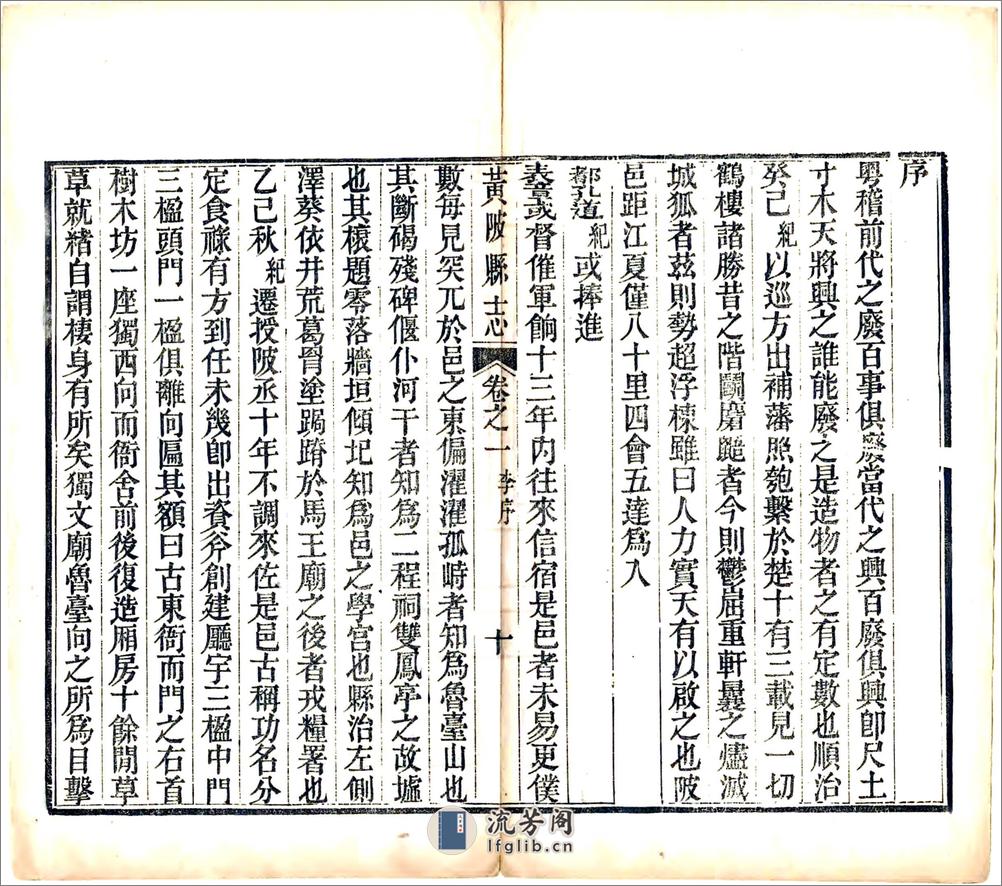 序
粵稽前代之廢百事俱廢當代之興百廢俱興卽尺土
寸木天將興之誰能廢之是造物者之有定數也順治
癸巳紀以巡方出補藩照匏繫於楚十有三載見一切
鶴樓諸勝昔之階鬭麏鼯者今則鬱屈重軒曩之燼滅
城狐者茲則勢超浮棟雖曰人力實天有以啟之也陂
邑距江夏僅八十里四會五達爲入
都孔道紀或捧進
表章或督催軍餉十三年內往來信宿是邑者未易更僕
黃陂縣志 卷之一 李序 十
數每見突兀於邑之東偏濯濯孤峙者知爲魯臺山也
其斷碣殘碑偃仆河干者知爲二程祠雙鳳亭之故墟
也其榱題零落牆垣傾圮知爲邑之學宮也縣治左側
澤葵依井荒葛罥塗跼蹐於馬王廟之後者戎糧署也
乙巳秋紀遷授陂丞十年不調來佐是邑古稱功名分
定食祿有方到任未幾卽出資斧創建廳宇三楹中門
三楹頭門一楹俱離向匾其額曰古東衙而門之右首
樹木坊一座獨西向而衙舍前後復造厢房十餘間草
草就緒自謂棲身有所矣獨文廟魯臺向之所爲目擊
流芳阁
lfglib.cn